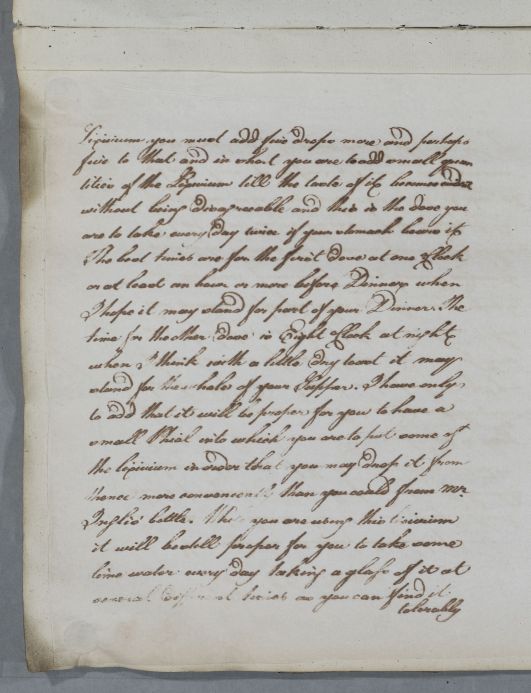 Lixivium you must add five drops more and perhaps
five to that and in short you are to add small quan
tities of the Lixivium till the taste of it becomes
without being disagreeable and this is the dose you
are to take every day twice if your stomach bears it
The best times are for the first dose at one oClock
or at least an hour or more before Dinner when
I hope it may stand for part of your Dinner. The
time for the other dose is Eight oClock at night
when I think with a little dry toast it may
stand for the whole of your Supper. I have only
to add that it will be proper for you to have a
small Phial into which you are to put some of
the lixivium in order that you may drop it from
thence more conveniently than you could from Mr.
Inglis' bottle. While you are using this lixivium
it will be still proper for you to take some
lime water every day taking a glass of it at
several different times as you can find it
tolerably